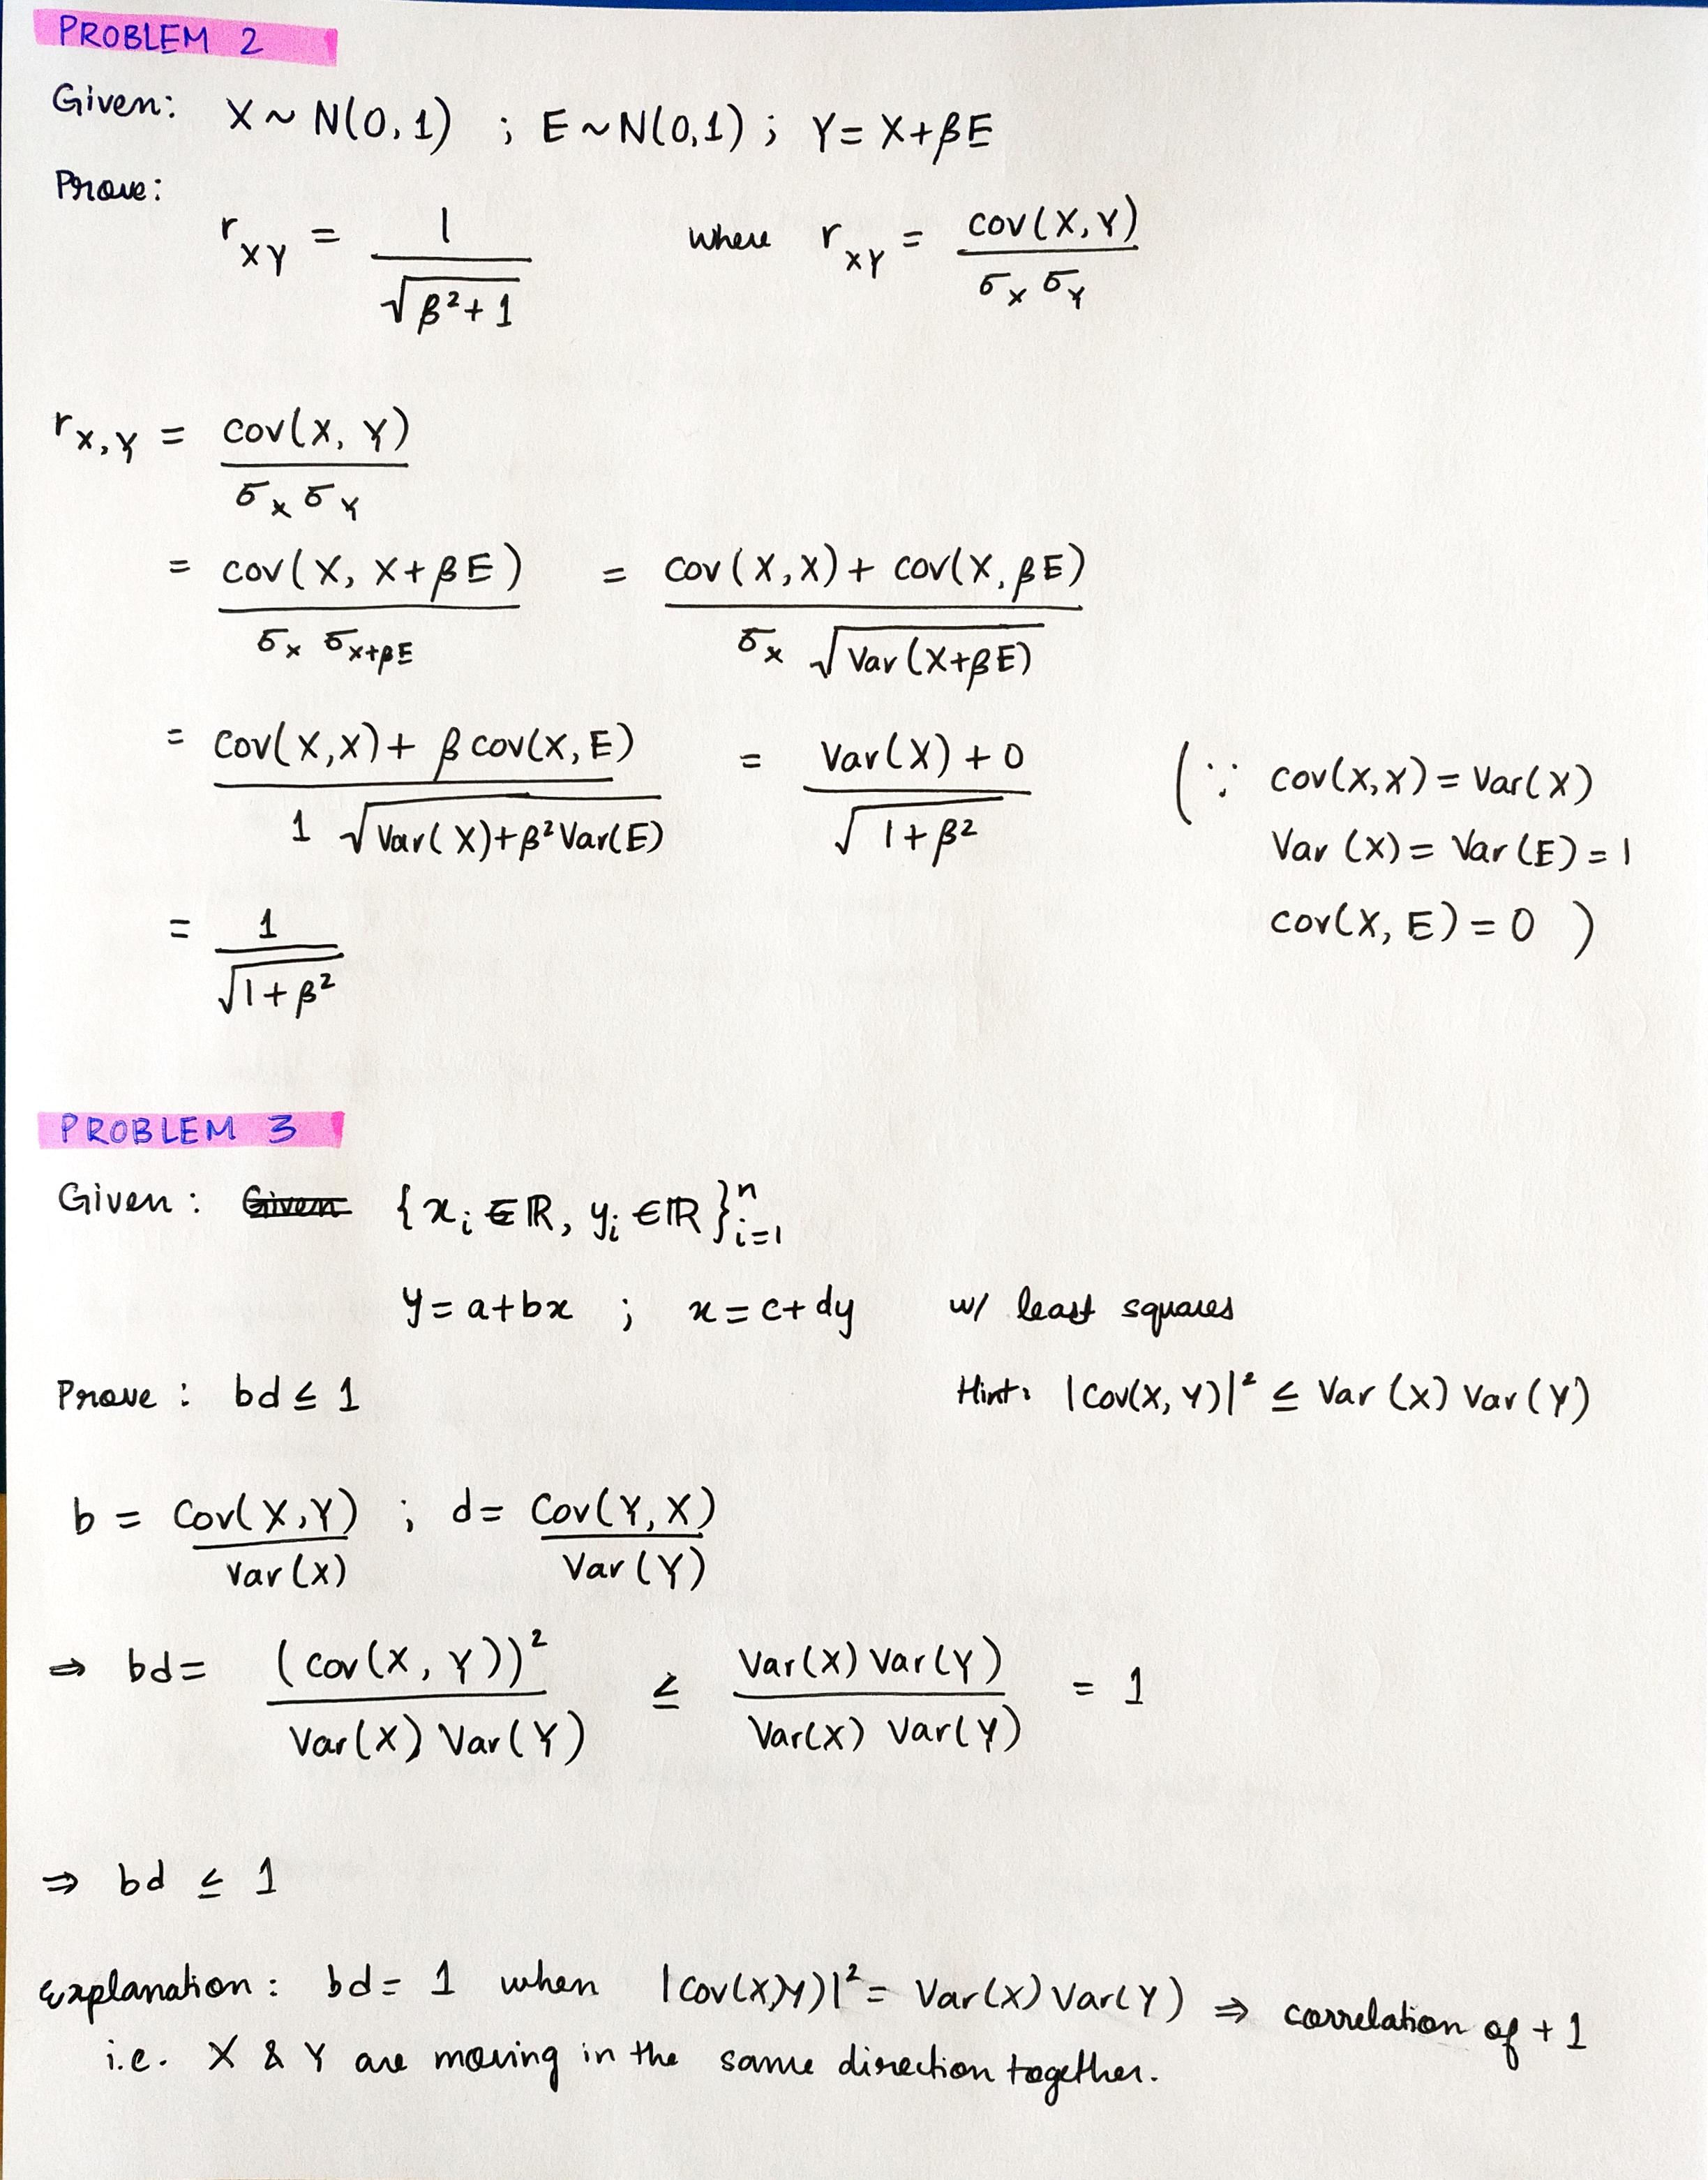 PROBLEM 2
Given: X ~ N(0,1) ; E ~ N(0,1) ; Y = X + βE
Prove:
r_XY = 1 / √(β² + 1) where r_XY = cov(X, Y) / σ_X σ_Y
r_X,Y = cov(X, Y) / σ_X σ_Y
= cov(X, X + βE) / σ_X σ_X+βE = cov(X,X) + cov(X, βE) / σ_X √(Var(X+βE))
= cov(X,X) + β cov(X,E) / 1 √(Var(X) + β² Var(E)) = Var(X) + 0 / √(1 + β²) (∵ cov(X,X) = Var(X)
Var(X) = Var(E) = 1
cov(X, E) = 0 )
= 1 / √(1 + β²)
PROBLEM 3
Given : Given {x_i ∈ ℝ, y_i ∈ ℝ}ⁿ_i=1
y = a + bx ; x = c + dy w/ least squares
Prove : bd ≤ 1 Hint: |Cov(X, Y)|² ≤ Var(X) Var(Y)
b = Cov(X,Y) / Var(X) ; d = Cov(Y, X) / Var(Y)
⇒ bd = (cov(X, Y))² / Var(X) Var(Y) ≤ Var(X) Var(Y) / Var(X) Var(Y) = 1
⇒ bd ≤ 1
Explanation : bd = 1 when |Cov(X,Y)|² = Var(X) Var(Y) ⇒ correlation of +1
i.e. X & Y are moving in the same direction together.